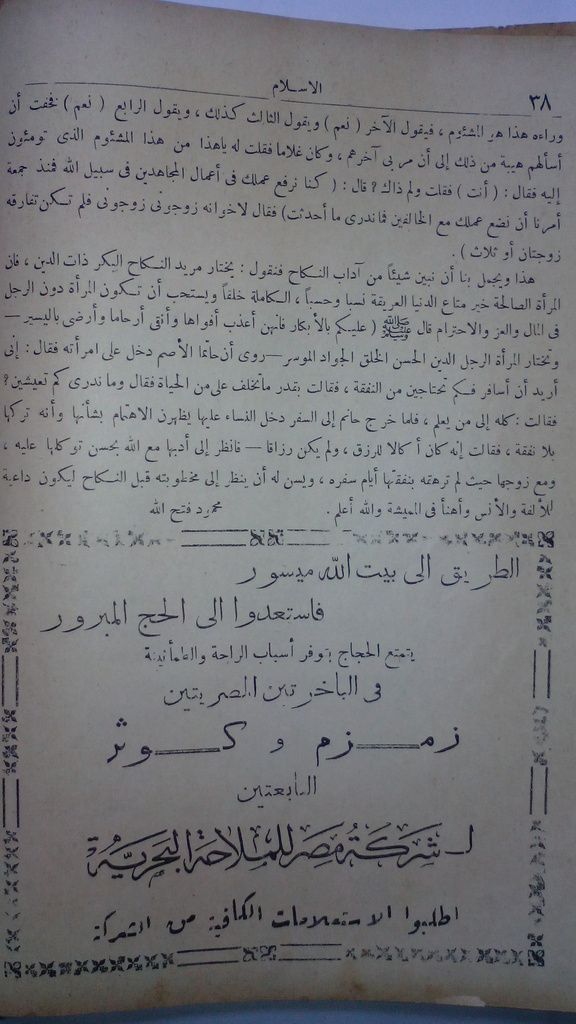 ٣٨
الاسلام
وراءه هذا هو المشئوم ، فيقول الآخر ( نعم ) ويقول الثالث كذلك ، ويقول الرابع ( نعم ) فخفت أن
أسألهم هيبة من ذلك إلى أن مر بى آخرهم ، وكان غلاما فقلت له ياهذا من هذا المشئوم الذى تومئون
إليه فقال : ( أنت ) فقلت ولم ذاك ? قال : ( كنا نرفع عملك فى أعمال المجاهدين فى سبيل الله فمنذ جمعة
أمرنا أن نضع عملك مع الخالفين فما ندرى ما أحدثت ) فقال لاخوانه زوجونى زوجونى فلم تكن تفارقه
زوجتان أو ثلاث ) .
هذا ويجمل بنا أن نبين شيئاً من آداب النكاح فنقول : يختار مريد النكاح البكر ذات الدين ، فان
المرأة الصالحة خير متاع الدنيا العريقة نسبا وحسباً ، الكاملة خلقاً ويستحب أن تكون المرأة دون الرجل
فى المال والعز والاحترام قال ﷺ ( عليكم بالأبكار فانهن أعذب أفواها وأنقى أرحاما وأرضى باليسير —
وتختار المرأة الرجل الدين الحسن الخلق الجواد الموسر — روى أن حاتما الأصم دخل على امرأته فقال : إنى
أريد أن أسافر فكم تحتاجين من النفقة ، فقالت بقدر ماتخلف على من الحياة فقال وما ندرى كم تعيشين ?
فقالت : كله إلى من يعلم ، فلما خرج حاتم إلى السفر دخل النساء عليها يظهرن الاهتمام بشأنها وأنه تركها
بلا نفقة ، فقالت إنه كان أكالا للرزق ، ولم يكن رزاقا — فانظر إلى أدبها مع الله بحسن توكلها عليه ،
ومع زوجها حيث لم ترهقه بنفقتها أيام سفره ، ويسن له أن ينظر إلى مخطوبته قبل النكاح ليكون داعية
للألفة والأنس وأهنأ فى المعيشة والله أعلم . محمود فتح الله
الطريق الى بيت الله ميسور
فاستعدوا الى الحج المبرور
يتمتع الحجاج بتوفر أسباب الراحة والطمأنينة
فى الباخرتين المصريتين
زمــزم و كــوثر
التابعتين
لــ شركة مصر للملاحة البحرية
اطلبوا الاستعلامات الكافية من الشركة